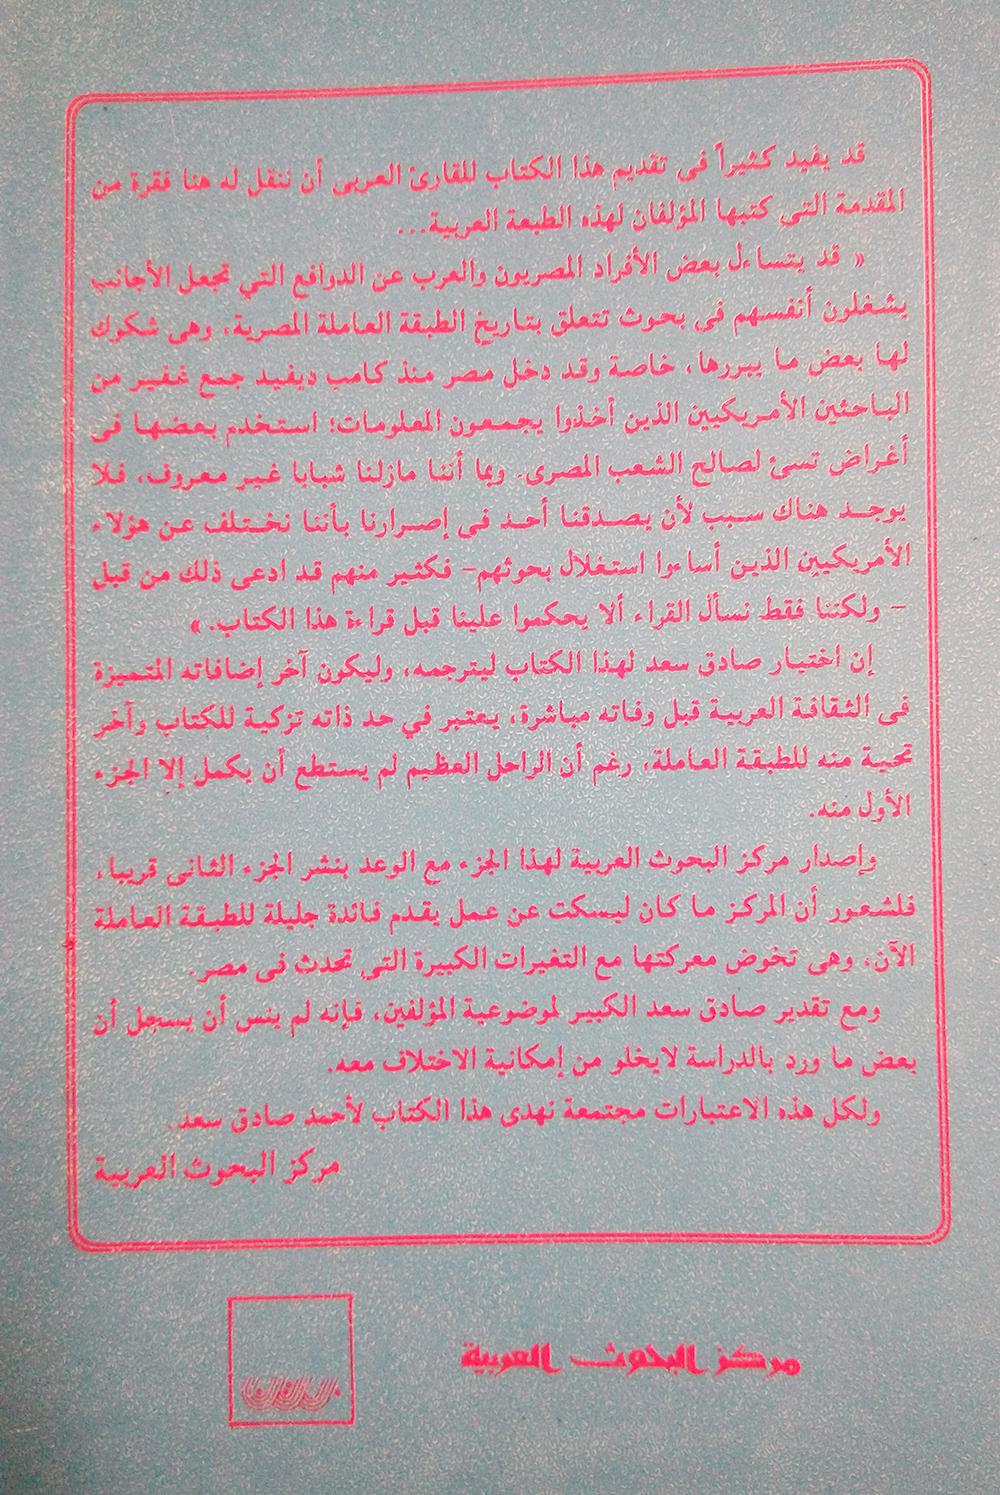 قد يفيد كثيراً فى تقديم هذا الكتاب للقارئ العربى أن ننقل له هنا فقرة من
المقدمة التى كتبها المؤلفان لهذه الطبعة العربية...
« قد يتساءل بعض الأفراد المصريون والعرب عن الدوافع التي تجعل الأجانب
يشغلون أنفسهم فى بحوث تتعلق بتاريخ الطبقة العاملة المصرية، وهى شكوك
لها بعض ما يبررها، خاصة وقد دخل مصر منذ كامب ديفيد جمع غفير من
الباحثين الأمريكيين الذين أخذوا يجمعون المعلومات؛ استخدم بعضها فى
أغراض تسئ لصالح الشعب المصرى. وبما أننا مازلنا شبابا غير معروف، فلا
يوجد هناك سبب لأن يصدقنا أحد فى إصرارنا بأننا نختلف عن هؤلاء
الأمريكيين الذين أساءوا استغلال بحوثهم- فكثير منهم قد ادعى ذلك من قبل
- ولكننا فقط نسأل القراء ألا يحكموا علينا قبل قراءة هذا الكتاب. »
إن اختيار صادق سعد لهذا الكتاب ليترجمه، وليكون آخر إضافاته المتميزة
فى الثقافة العربية قبل وفاته مباشرة، يعتبر في حد ذاته تزكية للكتاب وآخر
تحية منه للطبقة العاملة، رغم أن الراحل العظيم لم يستطع أن يكمل إلا الجزء
الأول منه.
وإصدار مركز البحوث العربية لهذا الجزء مع الوعد بنشر الجزء الثانى قريبا،
فلشعور أن المركز ما كان ليسكت عن عمل يقدم فائدة جليلة للطبقة العاملة
الآن، وهى تخوض معركتها مع التغيرات الكبيرة التى تحدث فى مصر.
ومع تقدير صادق سعد الكبير لموضوعية المؤلفين، فإنه لم ينس أن يسجل أن
بعض ما ورد بالدراسة لايخلو من إمكانية الاختلاف معه.
ولكل هذه الاعتبارات مجتمعة نهدى هذا الكتاب لأحمد صادق سعد.
مركز البحوث العربية
مركز البحوث العربية